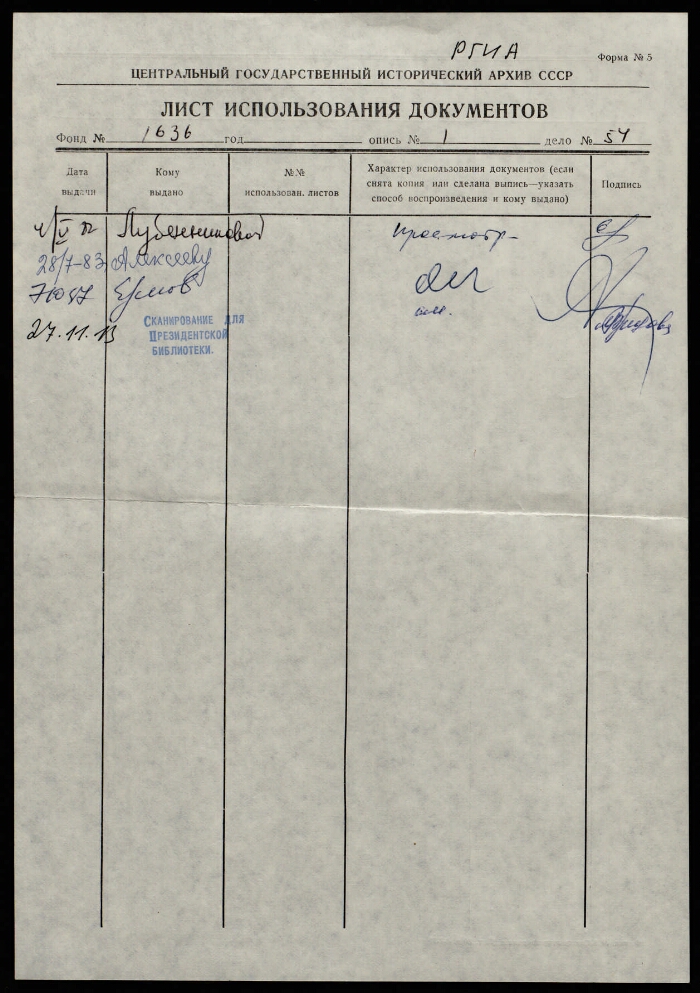 РГИА
Форма № 5
ЦЕНТРАЛЬНЫЙ ГОСУДАРСТВЕННЫЙ ИСТОРИЧЕСКИЙ АРХИВ СССР
ЛИСТ ИСПОЛЬЗОВАНИЯ ДОКУМЕНТОВ
Фонд № 1636 год опись № 1 дело № 54
Дата выдачи
Кому выдано
№№ использован. листов
Характер использования документов (если
снята копия или сделана выпись—указать
способ воспроизведения и кому выдано)
Подпись
Лубенниковой просмотр
28/7-83 Алексееву
Ермов
27.11.13
СКАНИРОВАНИЕ ДЛЯ
ПРЕЗИДЕНТСКОЙ
БИБЛИОТЕКИ.